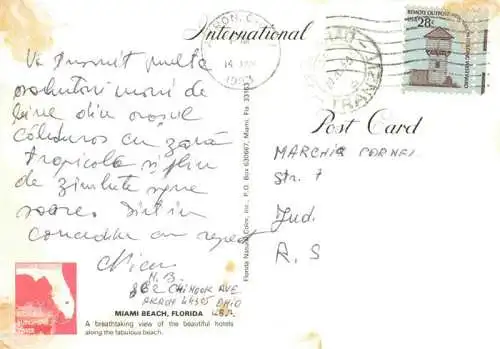 International
AKRON, O
14 JAN
1983
REMOTE OUTPOST
28c
Post Card
Vă trimit multe
salutări
bine din orașul
călduros cu zară
tropicală și plin
de zimbete spre
soare. Sînt în
concediu cu
Nicu
N. B.
862 CHINOOK AVE
AKRON 44305 OHIO
U.S.A.
MARCHIȘ CORNEL
Str. 7
Jud.
R. S
Florida Natural Color, Inc., P.O. Box 630667, Miami, Fla. 33163
SUNSHINE
MIAMI BEACH, FLORIDA
A breathtaking view of the beautiful hotels
along the fabulous beach.